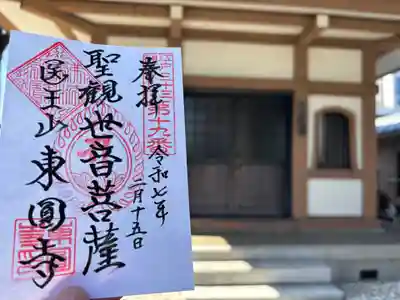 奉拝
令和七年
二月十五日
聖観世音菩薩
医王山東圓寺